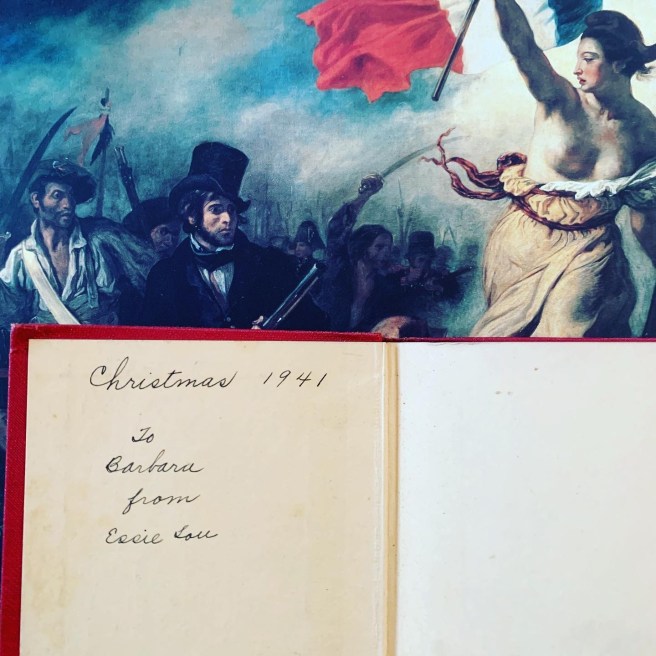 Christmas 1941
To
Barbara
from
Essie Lou